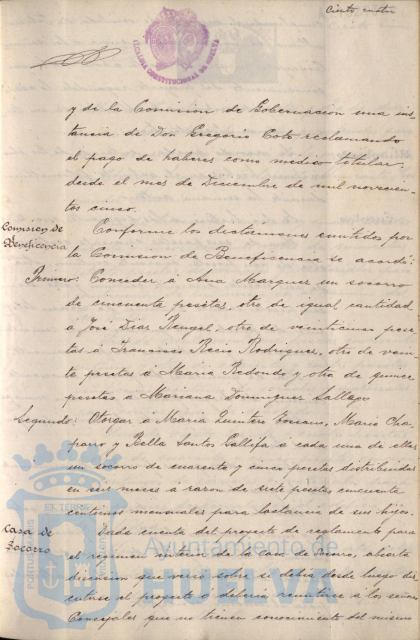 Ciento cuatro
ALCALDIA CONSTITUCIONAL DE HUELVA
y de la Comision de Gobernacion una ins
tancia de Don Gregorio Coto reclamando
el pago de haberes como medico titular
desde el mes de Diciembre de mil novecien
tos cinco.
Comision de
Beneficencia
Conforme los dictamenes emitidos por
la Comision de Beneficencia se acordó:
Primero: Conceder á Ana Marquez un socorro
de cincuenta pesetas, otro de igual cantidad
á José Diaz Rengel, otro de veinticinco pese
tas á Francisco Recio Rodriguez, otro de vein
te pesetas á Maria Redondo y otro de quince
pesetas a Mariana Dominguez Gallego
Segundo: Otorgar á Maria Quintero Toscano, Maria Cha
parro y Bella Santos Pallifa á cada una de ellas
un socorro de cuarenta y cinco pesetas distribuidas
en seis meses á razon de siete pesetas cincuenta
centimos mensuales para lactancia de sus hijos.
Casa de
Socorro
Dada cuenta del proyecto de reglamento para
el regimen interior de la Casa de Socorro, abierta
discusion que versó sobre si debia desde luego dis
cutirse el proyecto ó deberia remitirse á los señores
Concejales que no tienen conocimiento del mismo
Ayuntamiento de
HUELVA